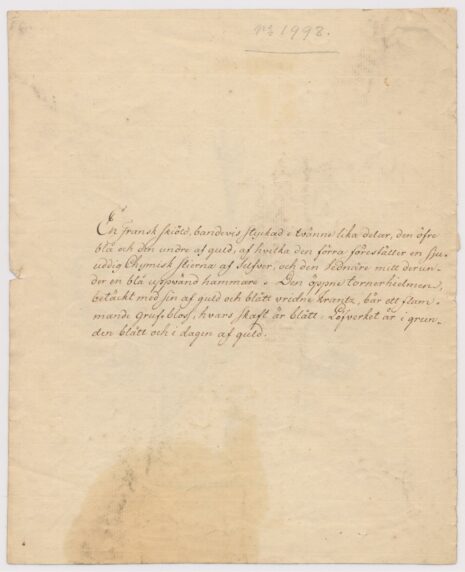 N:o 1998.
En Fransk skiöld, bandevis styckad i tvänne lika delar, den öfre
blå och den undre af guld, af hvilka den förra föreställer en sju-
uddig Chymisk stierna af Silfver, och den Sednare mitt derun-
der en blå uppvänd hammare. Den öppne tornerhielmen,
betäckt med sin af guld och blått vredne krants, bär ett flam-
mande grufebloss, hvars skaft är blått. Löfverket är i grun-
den blått och i dagen af guld.